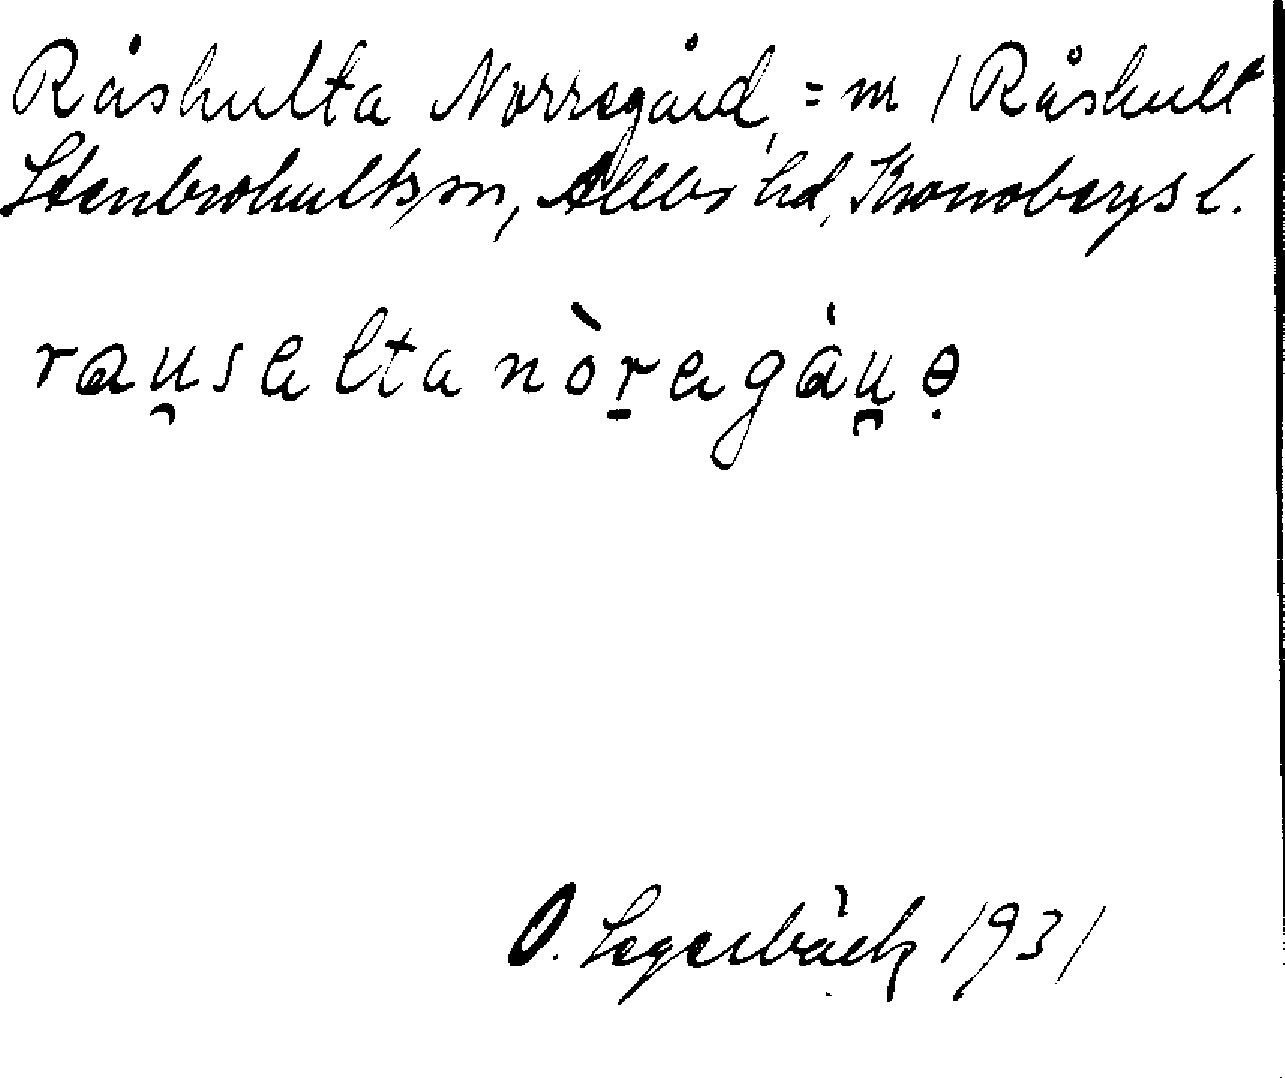 Råshulta Norregård, = m / Råshult
Stenbrohults sn, Allbo hd, Kronobergs l.
rau̯saltanòr̠agáu̯ə̣
O. Lagerbäck 1931